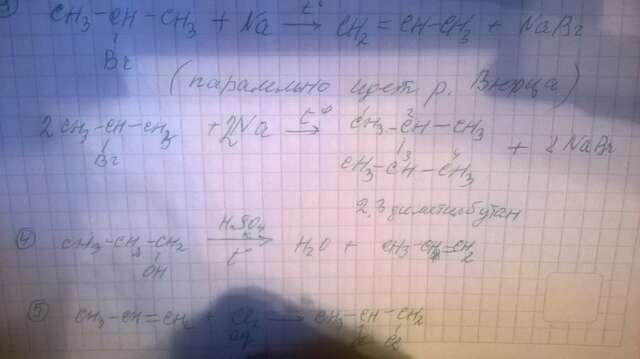 3) CH3 - CH - CH3 + Na t° → CH2 = CH - CH3 + NaBr
Br
(паралельно идет р. Вюрца)
2 CH3 - CH - CH3 + 2Na t° → CH3 - CH - CH3 + 2NaBr
Br CH3 - CH - CH3
2,3 диметилбутан
4 CH3 - CH2 - CH2 H2SO4 к t° → H2O + CH3 - CH = CH2
OH
5 CH3 - CH = CH2 + Cl2 → CH3 - CH - CH2
Cl Cl